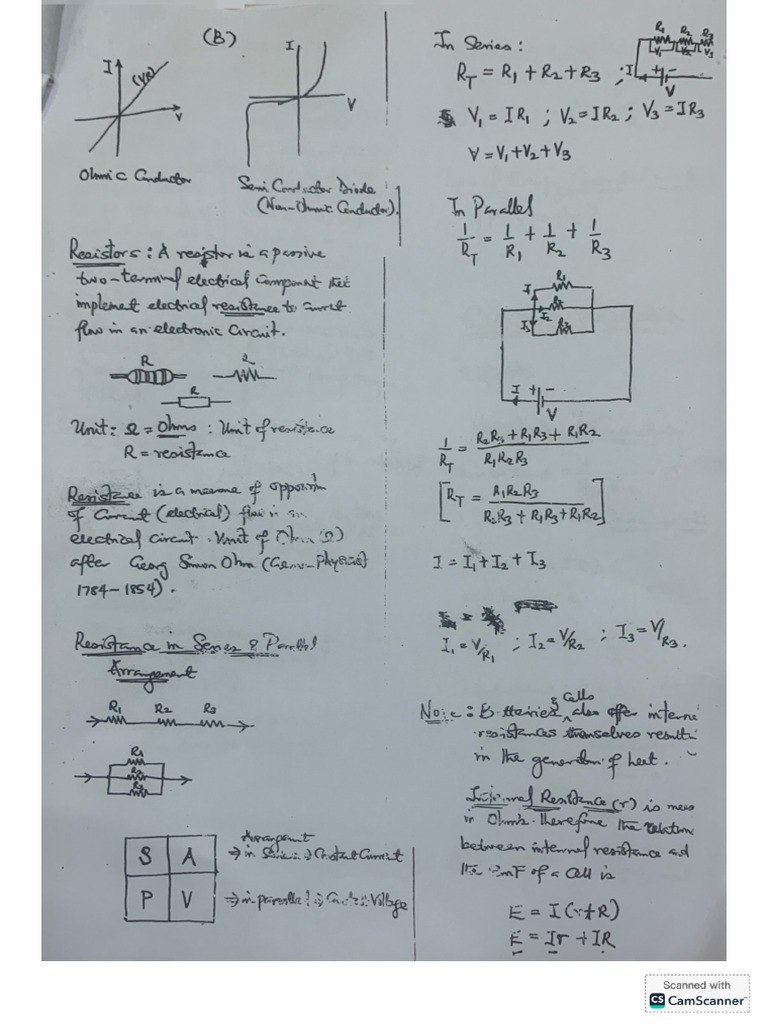 (B)
I
(VR)
V
Ohmic Conductor
I
V
Semi Conductor Diode
(Non-Ohmic Conductor).
Resistors: A resistor is a passive
two-terminal electrical component that
implement electrical resistance to current
flow in an electronic Circuit.
R
R
Unit: Ω = Ohms : Unit of resistance
R = resistance
Resistance is a measure of opposition
of Current (electrical) flow in an
electrical circuit. Unit of Ohm (Ω)
after Georg Simon Ohm (German Physicist
1784-1854).
Resistance in Series & Parallel
Arrangement
R1 R2 R3
R1
R2
R3
S A
P V
Arrangement
→ in Series → Constant Current
→ in parallel → Constant Voltage
In Series:
R1 R2 R3
V1 V2 V3
I + - V
RT = R1 + R2 + R3 ;
V1 = IR1 ; V2 = IR2 ; V3 = IR3
V = V1 + V2 + V3
In Parallel
1/RT = 1/R1 + 1/R2 + 1/R3
R1
I1
I2 R2
I3 R3
I + -
V
1/RT = R2R3 + R1R3 + R1R2 / R1R2R3
[RT = R1R2R3 / R2R3 + R1R3 + R1R2]
I = I1 + I2 + I3
I1 = V/R1 ; I2 = V/R2 ; I3 = V/R3.
Note: Batteries & Cells also offer interna
resistances themselves resulti
in the generation of heat.
Internal Resistance (r) is meas
in Ohms. therefore the relation
between internal resistance and
the emf of a Cell is
E = I(r+R)
E = Ir + IR
Scanned with
CS CamScanner